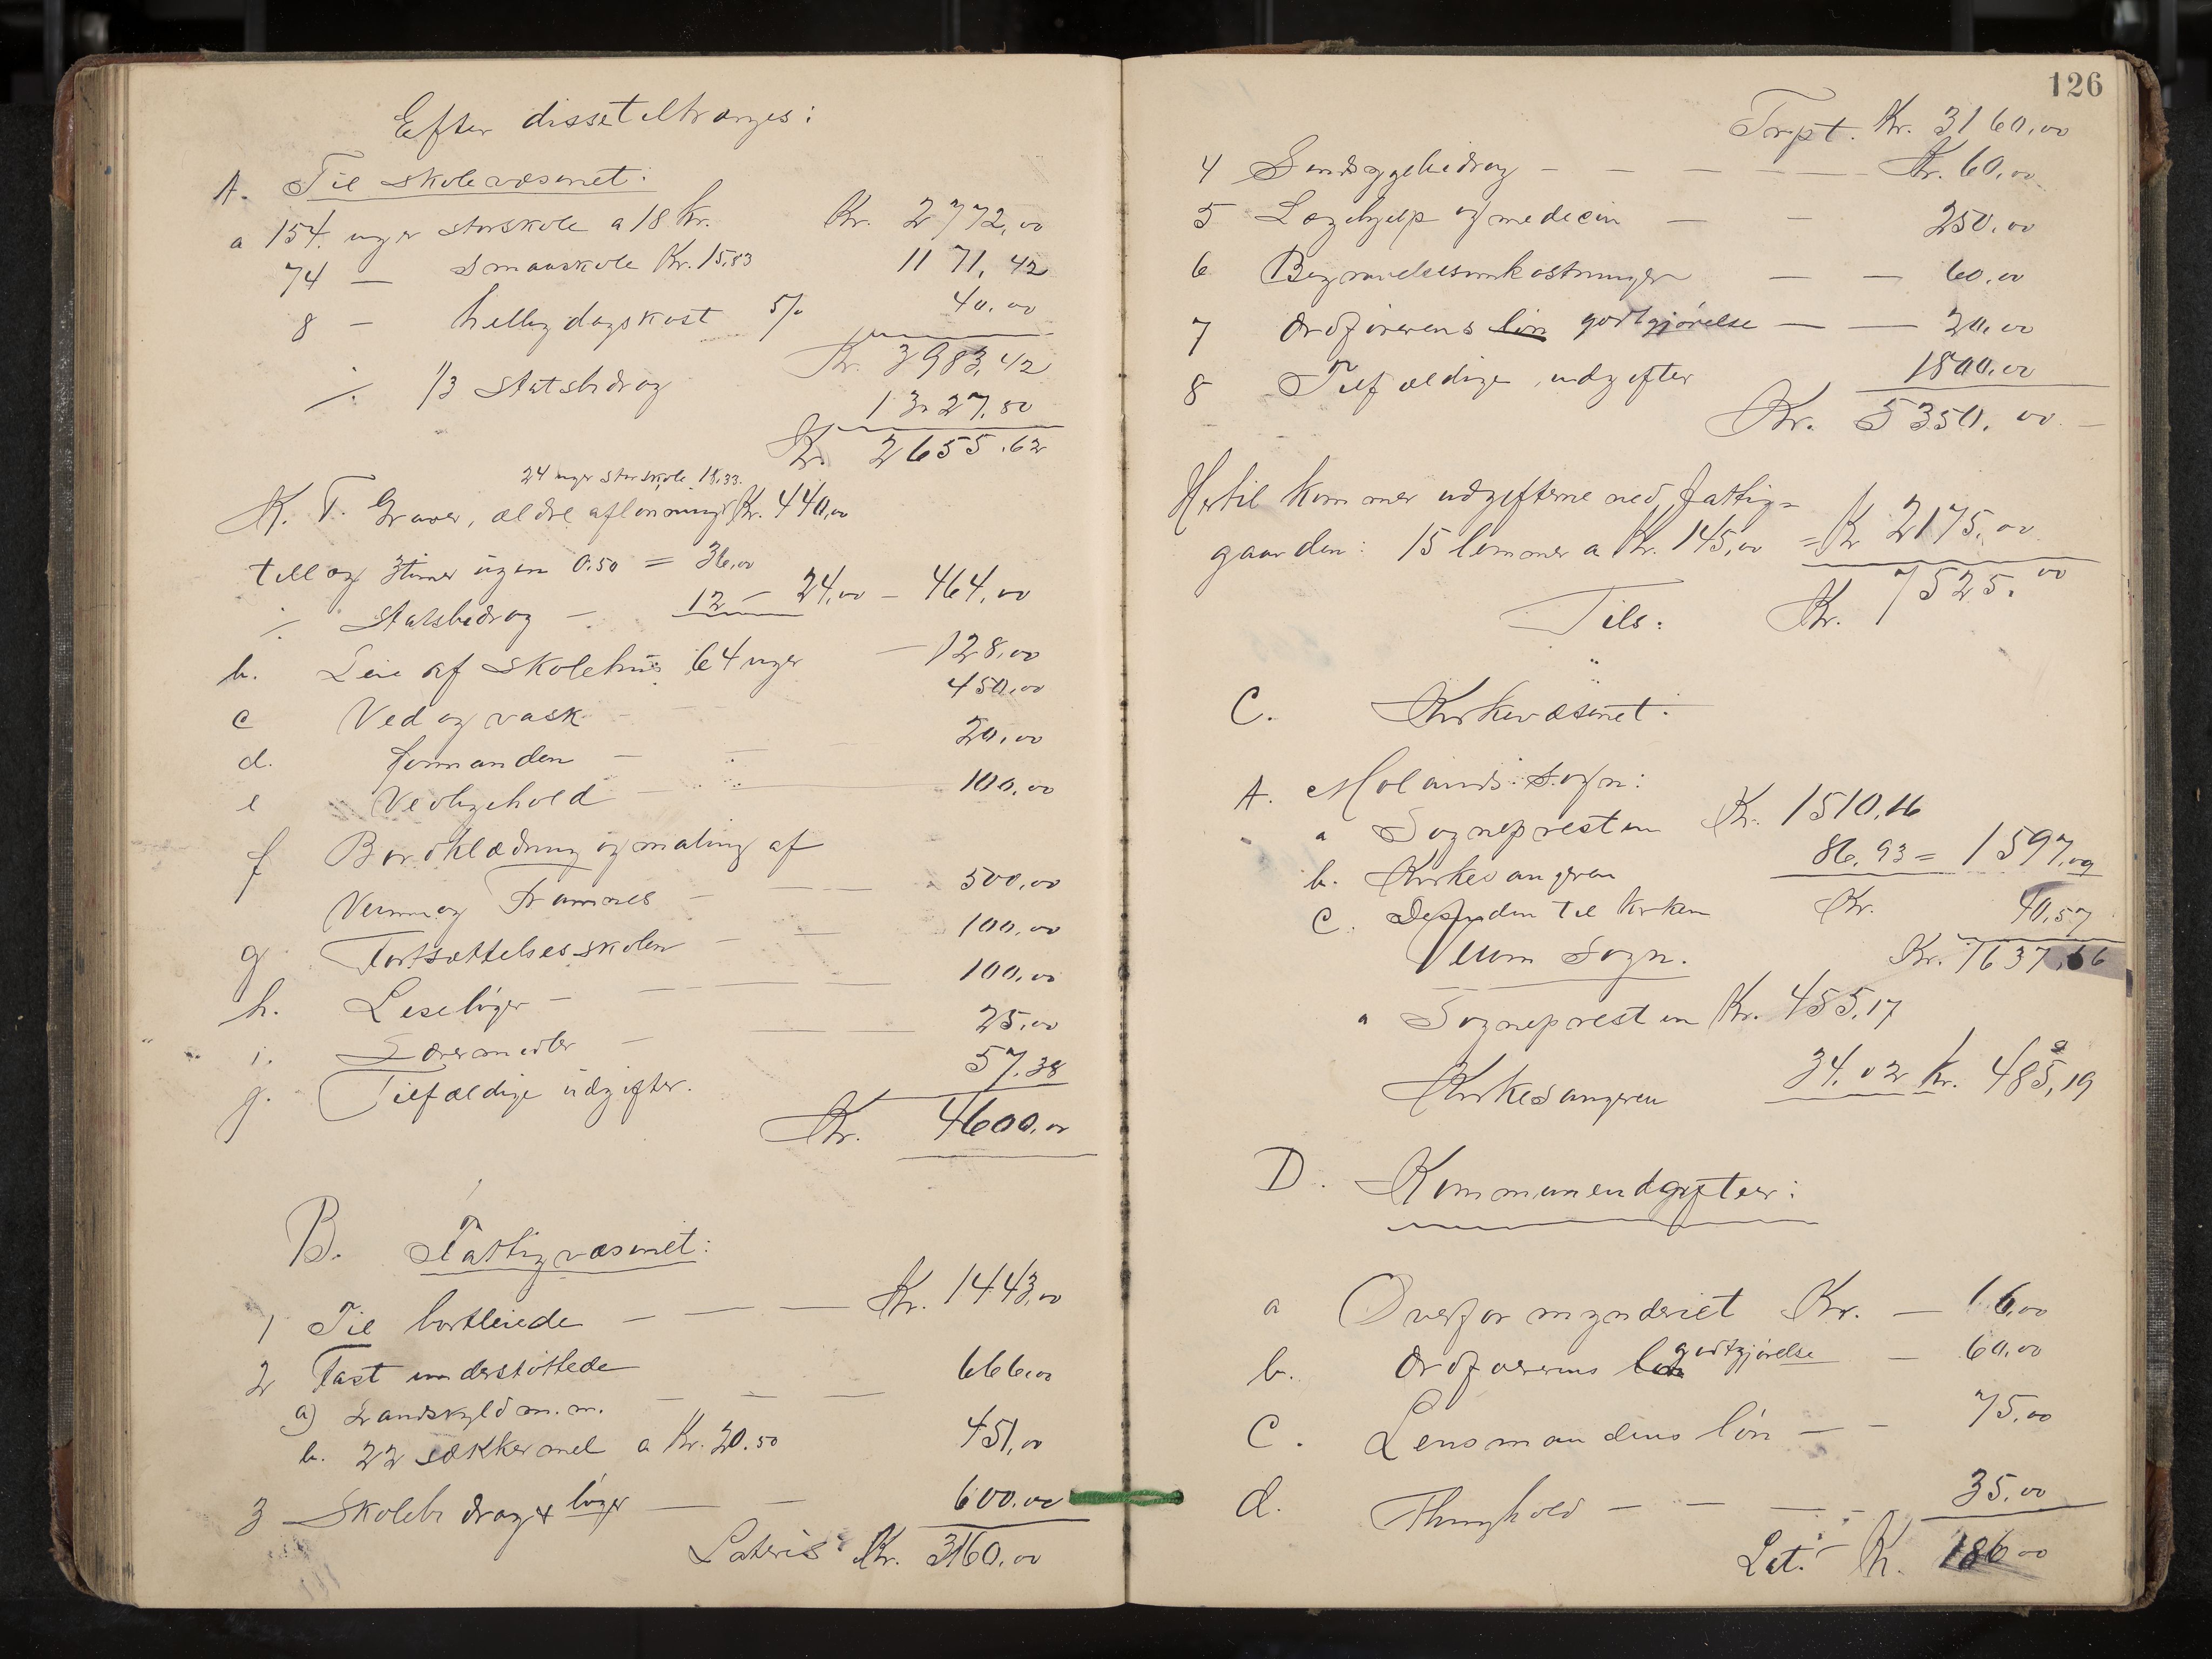 Efter disse tiltrænges:
A. Til skolevæsenet:
a 154. uger storskole a 18 Kr. Kr. 2772,00
74 — Smaaskole Kr. 15,83 1171,42
8 — helligdagskost 5/. 40.00
Kr. 3983,42
./. 1/3 Statsbidrag 1327.80
Kr. 2655.62
24 uger storskole 18,33.
K. T. Graver, ældre aflønning Kr. 440,00
tillæg 3 timer ugen 0.50 = 36,00
./. Statsbidrag — 12 — 24,00 — 464,00
b. Leie af skolehus 64 uger — 128,00
c Ved og vask 450,00
d. formanden — 20,00
e Vedligehold — 100,00
f Bordklædning og maling af
Veum og Framnes — 500,00
g Fortsættelsesskolen — — 100,00
h. Lesebøger — 100,00
i. Læremidler — 25,00
g. Tilfældige udgifter. 57,38
Kr. 4600,00
B. Fattigvæsenet:
1 Til bortleiede — — — Kr. 1443,00
2 Fast understøttede 666,00
a) Landskyld m. m. — — —
b. 22 sækker mel a Kr. 20.50 451,00
3 Skolebidrag & bøger — — 600.00
Lateris Kr. 3160,00
126
Trpt. Kr. 3160,00
4 Sindsygebidrag — — — — Kr. 60,00
5 Lægehjelp og medicin — — 250,00
6 Begravelsesomkostninger — — 60,00
7 Ordførerens løn godtgjørelse — — 20,00
8 Tilfældige udgifter 1800,00
Kr. 5350,00
Hertil kommer udgifterne ved fattig-
gaarden: 15 lemmer a Kr. 145,00 = Kr 2175,00
Tils: Kr. 7525,00
C. Kirkevæsenet:
A. Molands Sogn:
a Sognepresten Kr. 1510,16
b. Kirkesangeren 86,93 = 1597,09
c. Desuden til kirken Kr. 40,57
Kr. 1637,66
Veum Sogn.
a Sognepresten Kr. 455,17
Kirkesangeren 34,02 Kr. 489,19
D. Kommuneudgifter:
a Overformynderiet Kr. — 16,00
b. Ordførerens løn godtgjørelse — 60,00
C. Lensmandens løn — — 75,00
d. Thinghold — — — 35,00
Lat. Kr. 186 00